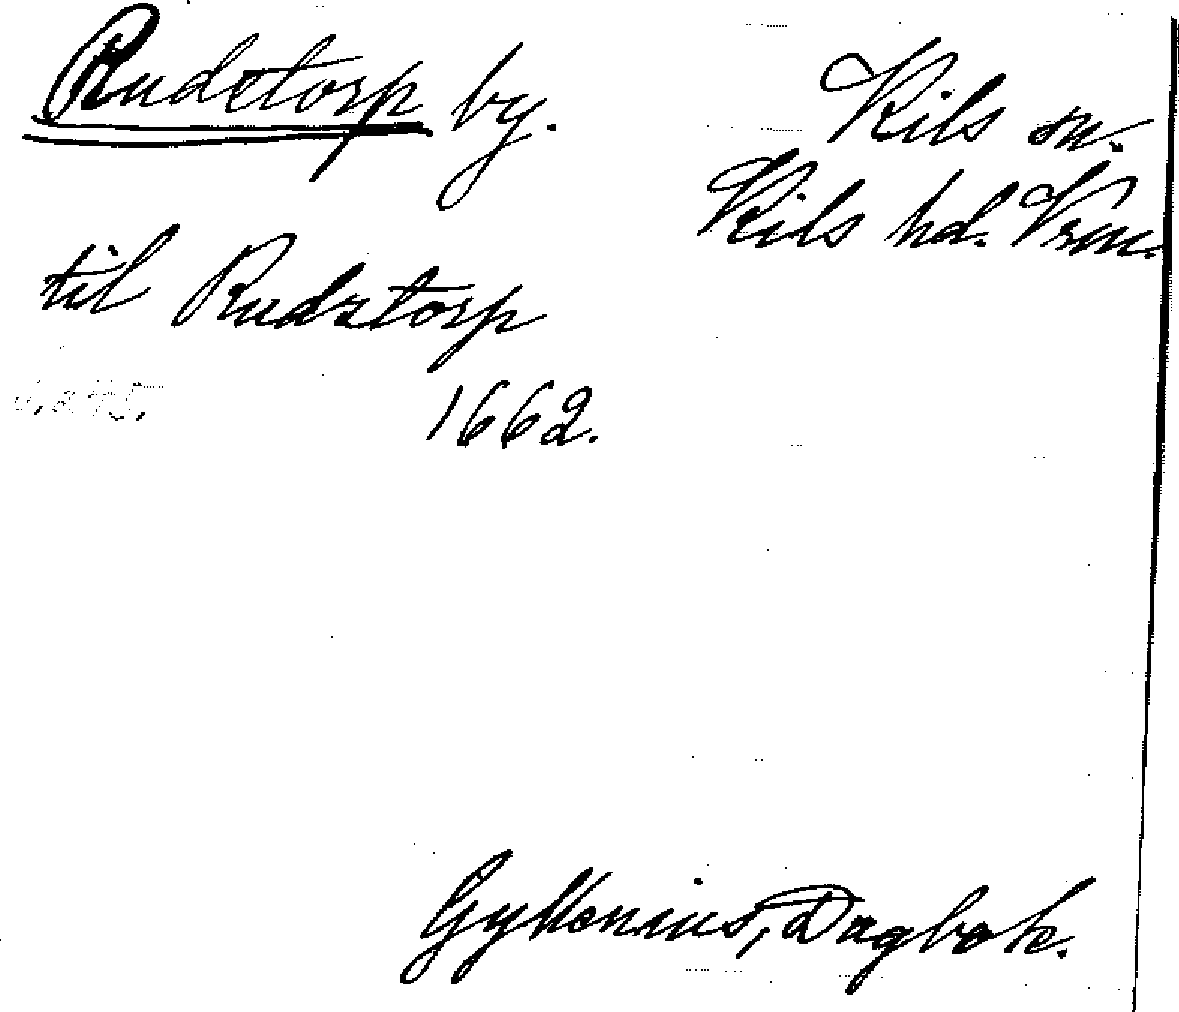 Rudstorp by.
Kils sn.
Kils hd. Vrm.
til Rudztorp
1662.
Gyllenius, Dagbok.